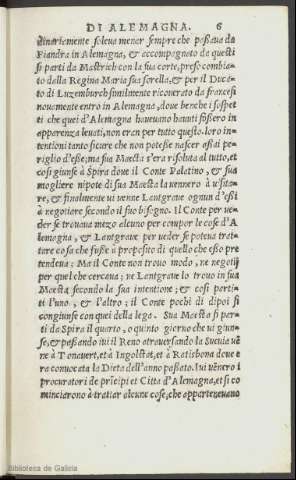 DI ALEMAGNA. 6
dinariamente soleua menar sempre che passaua da
Fiandra in Alemagna, & accompagnato da questi
si parti da Mastrich con la sua corte, preso combia-
to dalla Regina Maria sua sorella, & per il Duca-
to di Luzemburch similmente ricouerato da francesi
nouamente entro in Alemagna, doue benche i sospet
ti che quei d'Alemagna haueuano hauuti fossero in
apparenza leuati, non eran per tutto questo loro in-
tentioni tanto sicure che non potesse nascer assai pe-
riglio d'esse; ma sua Maesta s'era risoluta al tutto, et
cosi giunse à Spira doue il Conte Palatino, & sua
mogliere nipote di sua Maesta la uennero à uisita-
re, & finalmente ui uenne Lantgraue ognun d'essi
à negotiare secondo il suo bisogno. Il Conte per ue-
der se trouaua mezo alcuno per compor le cose d'A
lemagna, & Lantgraue per ueder se poteua trat-
tare cosa che fusse à proposito di quello che esso pre
tendeua: Ma il Conte non trouo modo, ne negotij
per quel che cercaua; ne Lantgraue lo trouo in sua
Maesta secondo la sua intentione; & cosi parti-
ti l'uno, & l'altro; il Conte pochi di dipoi si
congiunse con quei della lega. Sua Maesta si par
ti da Spira il quarto, o quinto giorno che ui giun-
se, & passando iui il Reno atrauersando la Sueuia ue
ne à Tonauert, et à Ingolstat, et à Ratisbona doue e
ra conuocata la Dieta dell'anno passato. Iui uenero i
procuratori de prīcipi et Citta d'Alemagna, et si co
minciarono à trattar alcune cose, che apparteneuano
Biblioteca de Galicia